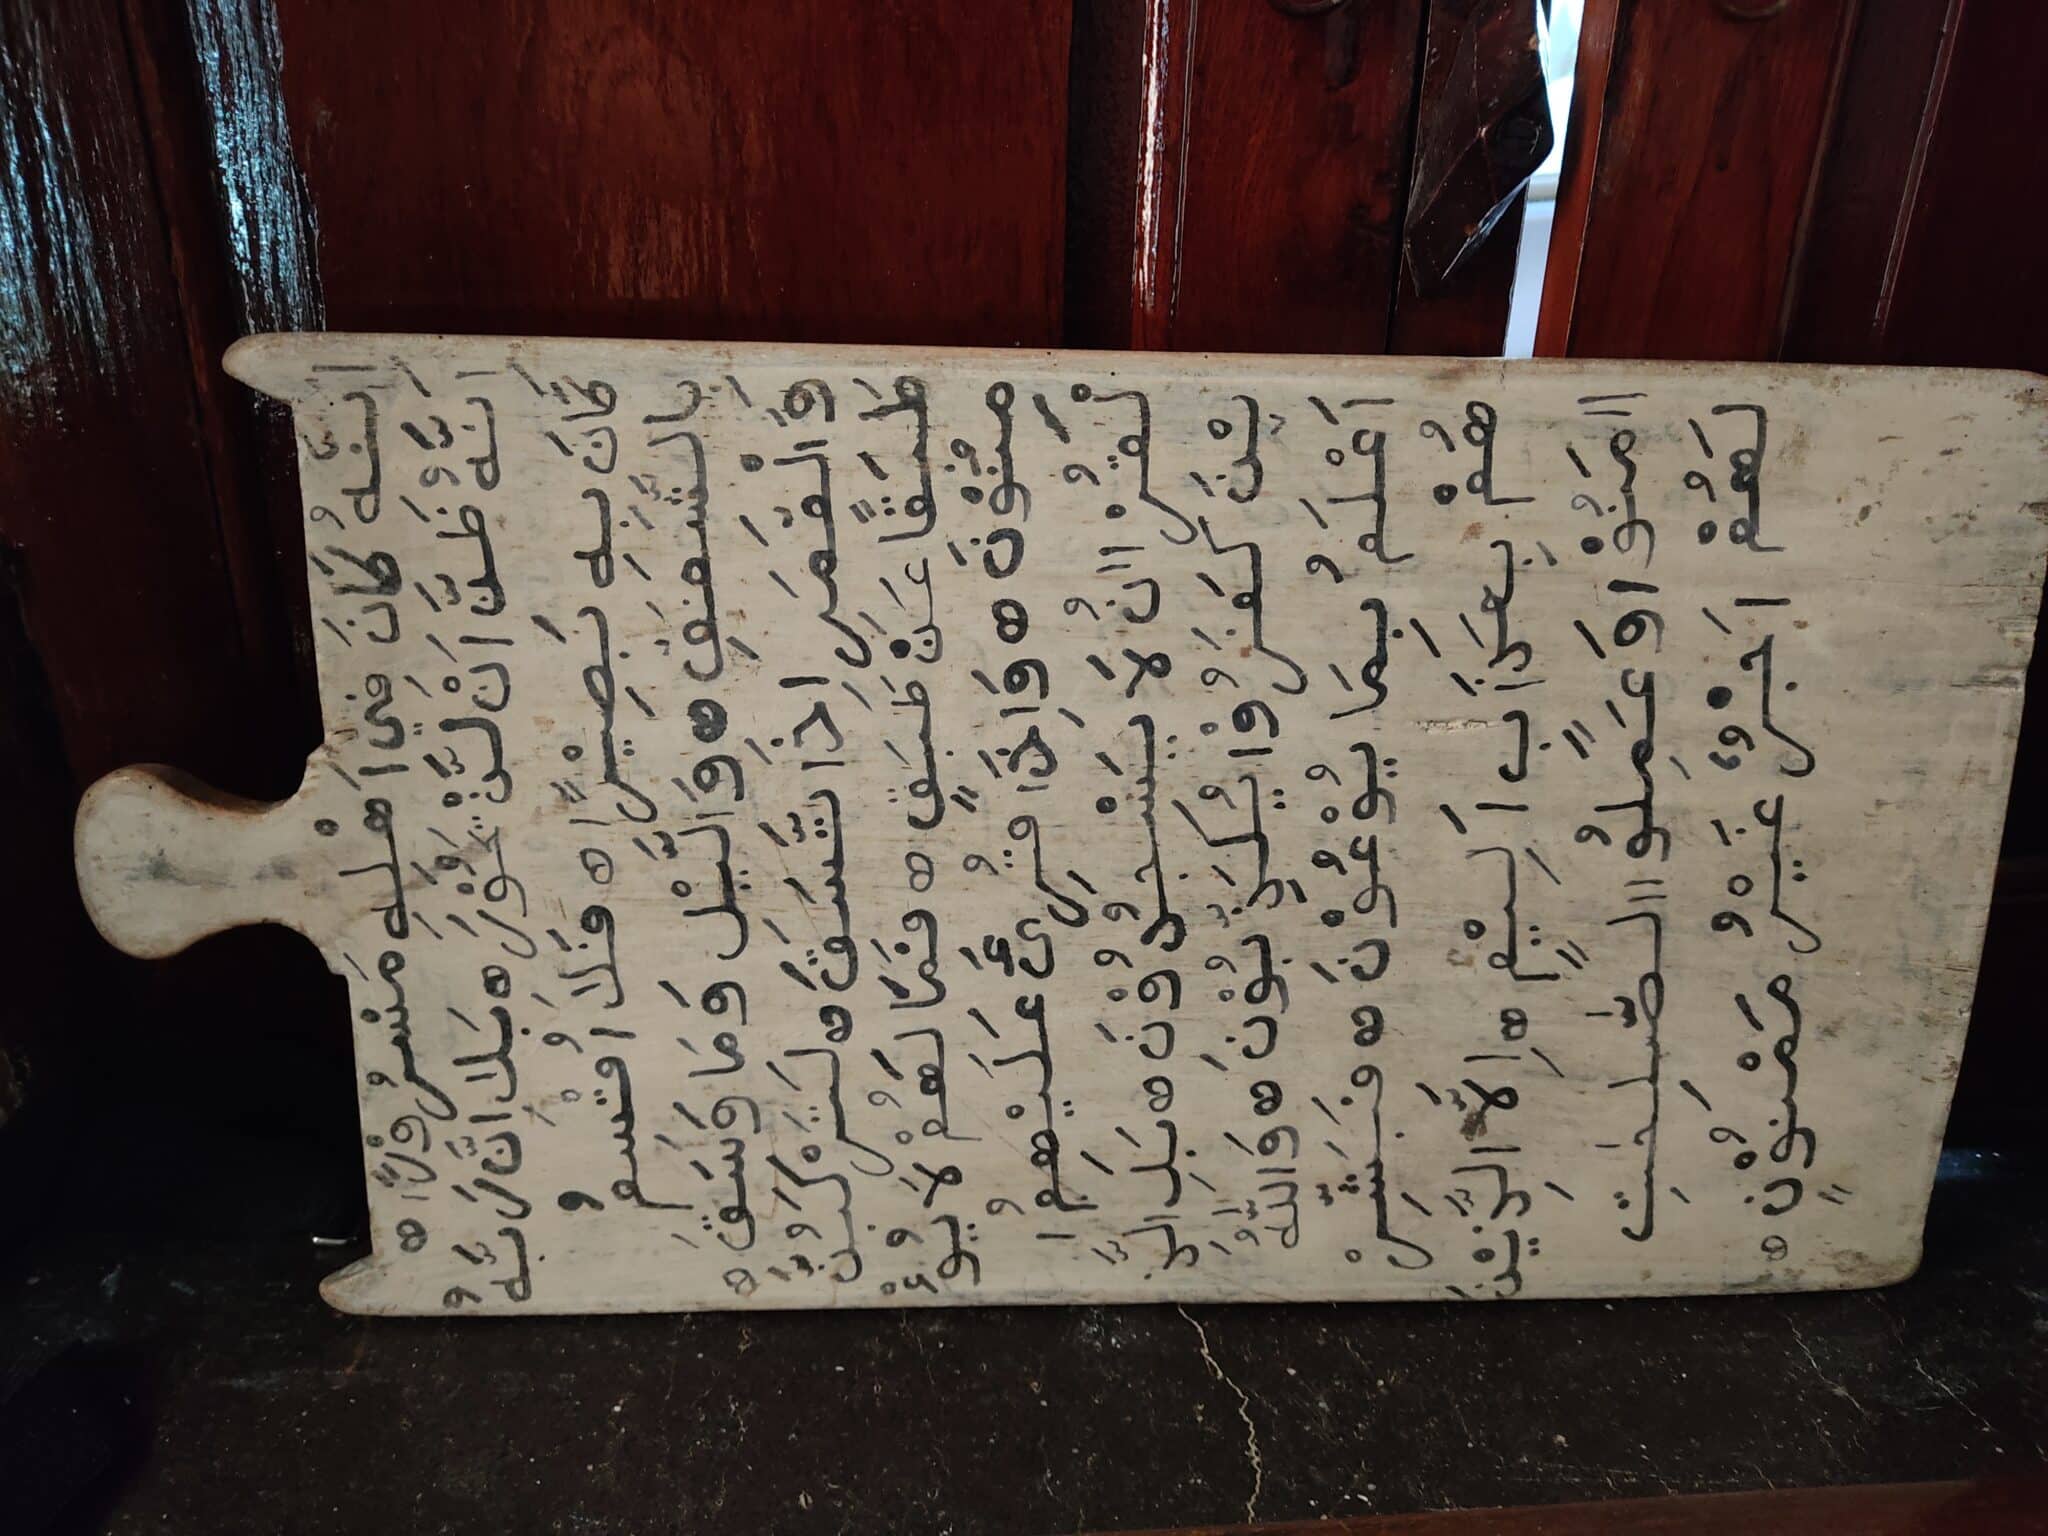 اِنَّهٗ كَانَ فِيْ اَهْلِهٖ مَسْرُوْرًا ه
اِنَّهٗ ظَنَّ اَنْ لَّنْ يَّحُوْرَ ه بَلَا اِنَّ رَبَّهٗ
كَانَ بِهٖ بَصِيْرًا ه فَلَا اُقْسِمُ
بِالشَّفَقِ ه وَالَّيْلِ وَمَا وَسَقَ ه
وَالْقَمَرِ اِذَا تَّسَقَ ه لَتَرْكَبُنَّ
طَبَقًا عَنْ طَبَقٍ ه فَمَا لَهُمْ لَا يُؤْ
مِنُوْنَ ه وَاِذَا قُرِئَ عَلَيْهِمُ ا
لْقُرْاٰنُ لَا يَسْجُدُوْنَ ه بَلِ الَّذِ
يْنَ كَفَرُوْا يُكَذِّبُوْنَ ه وَاللّٰهُ
اَعْلَمُ بِمَا يُوْعُوْنَ ه فَبَشِّرْ
هُمْ بِعَذَابٍ اَلِيْمٍ ه اِلَّا الَّذِيْنَ
اٰمَنُوْا وَعَمِلُوا الصّٰلِحٰتِ
لَهُمْ اَجْرٌ غَيْرُ مَمْنُوْنٍ ه